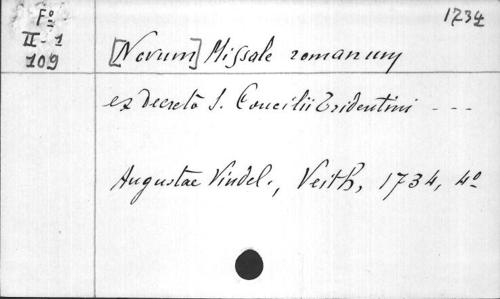 Fo
II-1
109
1734
[Novum] Missale romanum
ex decreto S. Concilii Tridentini - - -
Augustae Vindel., Veith, 1734, 4o